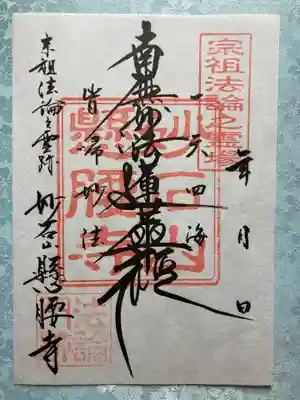 宗祖法論之霊場
年 月 日
一天四海
南無妙法蓮華経
皆帰妙法
妙石山
懸腰寺
宗祖法論之霊跡 妙石山懸腰寺